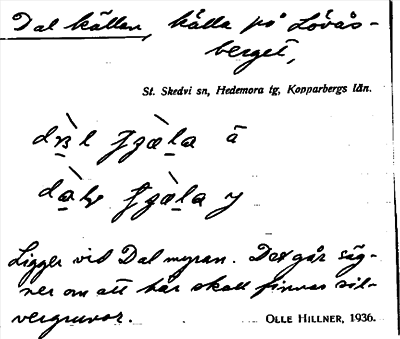 Dal källan, källa på Lövås-
berget,
St. Skedvi sn, Hedemora tg, Kopparbergs län.
ä
y
Ligger vid Dalmyran. Det går säg-
ner om att här skall finnas sil-
vergruvor.
OLLE HILLNER, 1936.